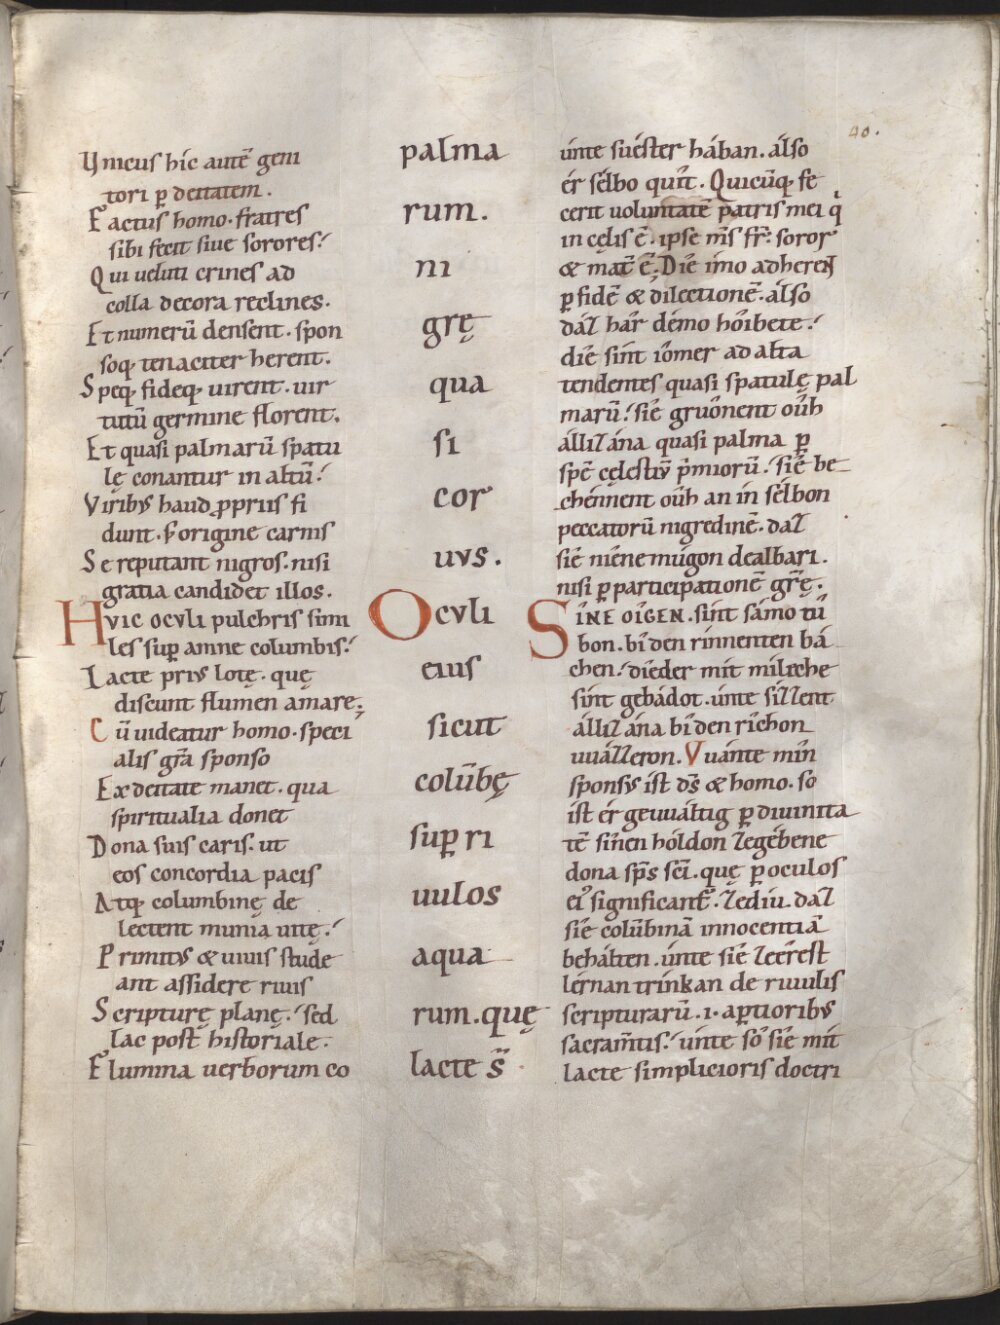 40.
Ynicus hic autē geni
tori ꝑ deitatem.
Factus homo. fratres
sibi fecit siue sorores.
Qui veluti crines ad
colla decora reclines.
Et numerū densent. spon
soq; tenaciter herent.
Speq; fideq; uirent. uir
tutū germine florent.
Et quasi palmarū spatu
lę conantur in altū.
Viribꝰ haud ꝓpriis fi
dunt. s; origine carnis
Se reputant nigros. nisi
gratia candidet illos.
HVIC OCVLI pulchris simi
les suꝑ amne columbis.
Lacte priꝰ lotę. quę
discunt flumen amare.
Cū uideatur homo. speci
alis gr̄a sponso
Ex deitate manet. qua
spiritualia donet
Dona suis caris. ut
eos concordia pacis
Atq; columbinę de
lectent munia uitę.
Primitꝰ & uiuis stude
ant assidere riuis
Scripturę planę. sed
lac post̄ historiale.
Flumina uerborum co
palma
rum.
ni
grę
qua
si
cor
uvs.
Ocvli
eius
sicut
colūbę
suꝑ ri
uulos
aqua
rum. quę
lacte s̄
únte suéster hában. álso
ér sélbo quit̄. Quicūq; fe
cerit uoluntatē patris mei q̇
in cęlis ē. ipse m̄s fr̄. soror
& mat̄ ē. Díe îmo adherēt
ꝑ fidē & dilectionē. álso
dáz hâr démo hôibete.
díe sint îomer ad alta
tendentes quasi spatulę pal
marū. síe grûonent ôuh
állizána quasi palma ꝑ
spē cęlestiū p̄miorū. síe be
chénnent ôuh an in sélbon
peccatorū nigredinē. daz
síe níene múgon dealbari.
nisi ꝑ participationē gr̄ę.
SÎNE OÎGEN. sint sámo tû
bon. bî den rinnenten bá
chen. dîeder mit míliche
sint gebádot. únte sizzent
állizána bî den rîchon
uuázzeron. Vuánte mîn
sponsꝰ ist ds̄ & homo. so
ist ér geuuáltig ꝑ diuinita
tē sînen hóldon zegébene
dona sp̄s sc̄i. quę ꝑ oculos
eiꝰ significant᷒. zediu. daz
síe colūbinā innocentiā
behálten. únte síe zeêrest
lérnan trínkan de riuulis
scripturarū. i. aꝑtioribꝰ
sacram̄tis. únte sô síe mit
lacte simplicioris doctri